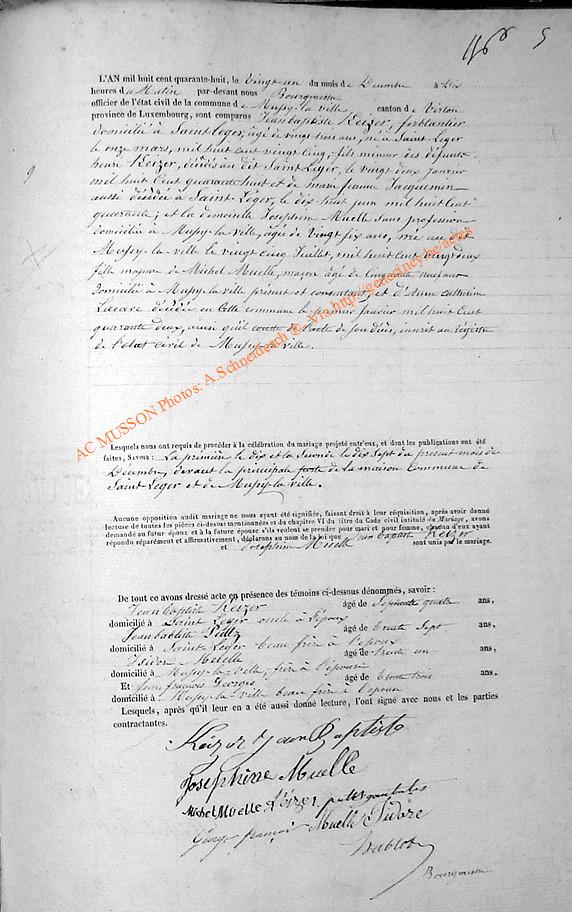 5
L'AN mil huit cent quarante-huit, le Vingt un du mois de Décembre à dix
heures du Matin par-devant nous Bourgmestre
officier de l'état civil de la commune de Mussy-la ville canton de Virton
province de Luxembourg, sont comparus Jean baptiste Keizer, ferblantier
domicilié à Saint Leger, agé de vingt trois ans, né à Saint-Leger
le onze mars, mil huit Cent vingt cinq, fils mineur des défunts
henri Keizer, décédé au dit Saint Léger, le vingt deux Janvier
mil huit Cent quarante huit et de marie jeanne Jacquemin
aussi décédée à Saint-Léger, le dix huit juin mil huit Cent
quarante; et la demoiselle Josephine Muelle sans profession
domiciliée à Mussy-la ville, agée de Vingt six ans, née au dit
Mussy-la-ville le vingt cinq Juillet, mil huit cent vingt deux
fille majeure de Michel Muelle, maçon agé de Cinquante neuf ans
domicilié à Mussy-la ville présent et consentant, et d'Anne catherine
décédée en Cette commune le premier Janvier mil huit Cent
quarante deux, ainsi qu'il conste de l'acte de son décès, inscrit au Régistre
de l'état civil de Mussy-la-ville.
AC MUSSON Photos: A.Schneidesch ©. Via http://geneciney.be/actes
Lesquels nous ont requis de procéder à la célébration du mariage projeté entr'eux, et dont les publications ont été
faites, Savoir : La première le dix et la Seconde le dix Sept du présent mois de
Décembre, devant la principale porte de la maison Commune de
Saint-Leger et de Mussy-la ville.
Aucune opposition audit mariage ne nous ayant été signifiée, faisant droit à leur réquisition, après avoir donné
lecture de toutes les pièces ci-dessus mentionnées et du chapitre VI du titre du Code civil intitulé du Mariage, avons
demandé au futur époux et à la future épouse s'ils veulent se prendre pour mari et pour femme, chacun d'eux ayant
répondu séparément et affirmativement, déclarons au nom de la loi que Jean baptiste Keizer
et Josephine Muelle sont unis par le mariage.
De tout ce avons dressé acte en présence des témoins ci-dessous dénommés, savoir :
Jean baptiste Keizer âgé de Septante quatre ans,
domicilié à Saint Leger oncle à l'époux
Jean baptiste âgé de trente Sept ans,
domicilié à Saint-Leger beau frère à l'époux
Isidore Muelle âgé de trente un ans,
domicilié à Mussy-la-ville, frère à l'épouse
Et Jean françois Georges âgé de trente trois ans,
domicilié à Mussy-la-ville beau frère à l'épouse
Lesquels, après qu'il leur en a été aussi donné lecture, l'ont signé avec nous et les parties
contractantes.
Keizer Jean Baptiste
Josephine Muelle
Michel Muelle Keizer
George françois Muelle Isidore
Bourgmestre